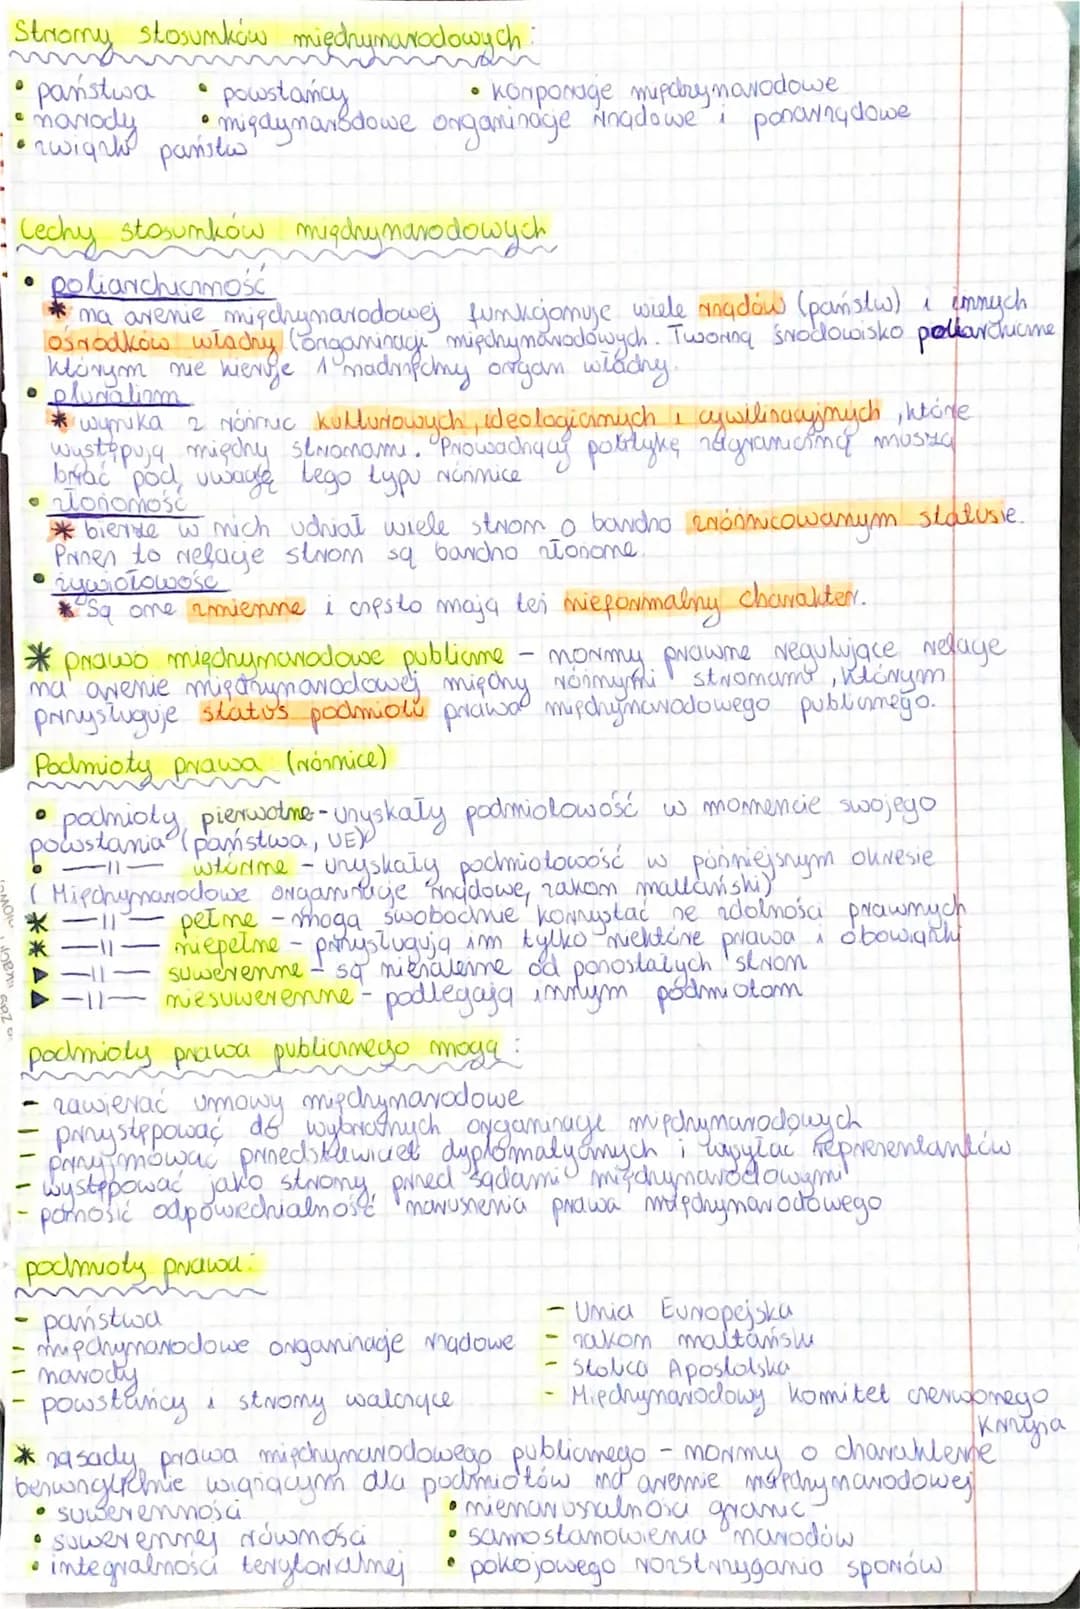 Strony stosunków międzynarodowych:
• państwa • powstańcy • korporacje międzynarodowe
• narody • międzynarodowe organizacje rządowe i pozarządowe
• związki państw
Cechy stosunków międzynarodowych
• poliarchiczność
* na arenie międzynarodowej funkcjonuje wiele rządów (państw) i innych
ośrodków władzy (organizacji międzynarodowych. Tworzą środowisko poliarchiczne
którym nie kieruje 1 nadrzędny organ władzy.
• pluralizm
* wynika z różnic kulturowych, ideologicznych i cywilizacyjnych, które
występują między stronami. Prowadzący politykę zagraniczną muszą
brać pod uwagę tego typu różnice
• złożoność
* bierze w nich udział wiele stron o bardzo zróżnicowanym statusie.
Przez to relacje stron są bardzo złożone.
• żywiołowość
* Są one zmienne i często mają też nieformalny charakter.
* prawo międzynarodowe publiczne - normy prawne regulujące relacje
na arenie międzynarodowej między różnymi stronami, którym
przysługuje status podmiotu prawa międzynarodowego publicznego.
Podmioty prawa (różnice)
• podmioty pierwotne - uzyskały podmiotowość w momencie swojego
powstania (państwa, UE)
• —||— wtórne - uzyskały podmiotowość w późniejszym okresie
(Międzynarodowe organizacje rządowe, zakon maltański)
* —||— pełne - mogą swobodnie korzystać ze zdolności prawnych
* —||— niepełne - przysługują im tylko niektóre prawa i obowiązki
▶ —||— suwerenne - są niezależne od pozostałych stron
▶ —||— niesuwerenne - podlegają innym podmiotom
podmioty prawa publicznego mogą:
- zawierać umowy międzynarodowe
- przystępować do wybranych organizacji międzynarodowych
- przyjmować przedstawicieli dyplomatycznych i wysyłać reprezentantów
- występować jako strony przed sądami międzynarodowymi
- ponosić odpowiedzialność naruszenia prawa międzynarodowego
podmioty prawa:
- państwa - Unia Europejska
- międzynarodowe organizacje rządowe - zakon maltański
- narody - Stolica Apostolska
- powstańcy i strony walczące - Międzynarodowy Komitet czerwonego
Krzyża
* zasady prawa międzynarodowego publicznego - normy o charakterze
bezwzględnie wiążącym dla podmiotów na arenie międzynarodowej
• suwerenności • nienaruszalności granic
• suwerennej równości • samostanowienia narodów
• integralności terytorialnej • pokojowego rozstrzygania sporów